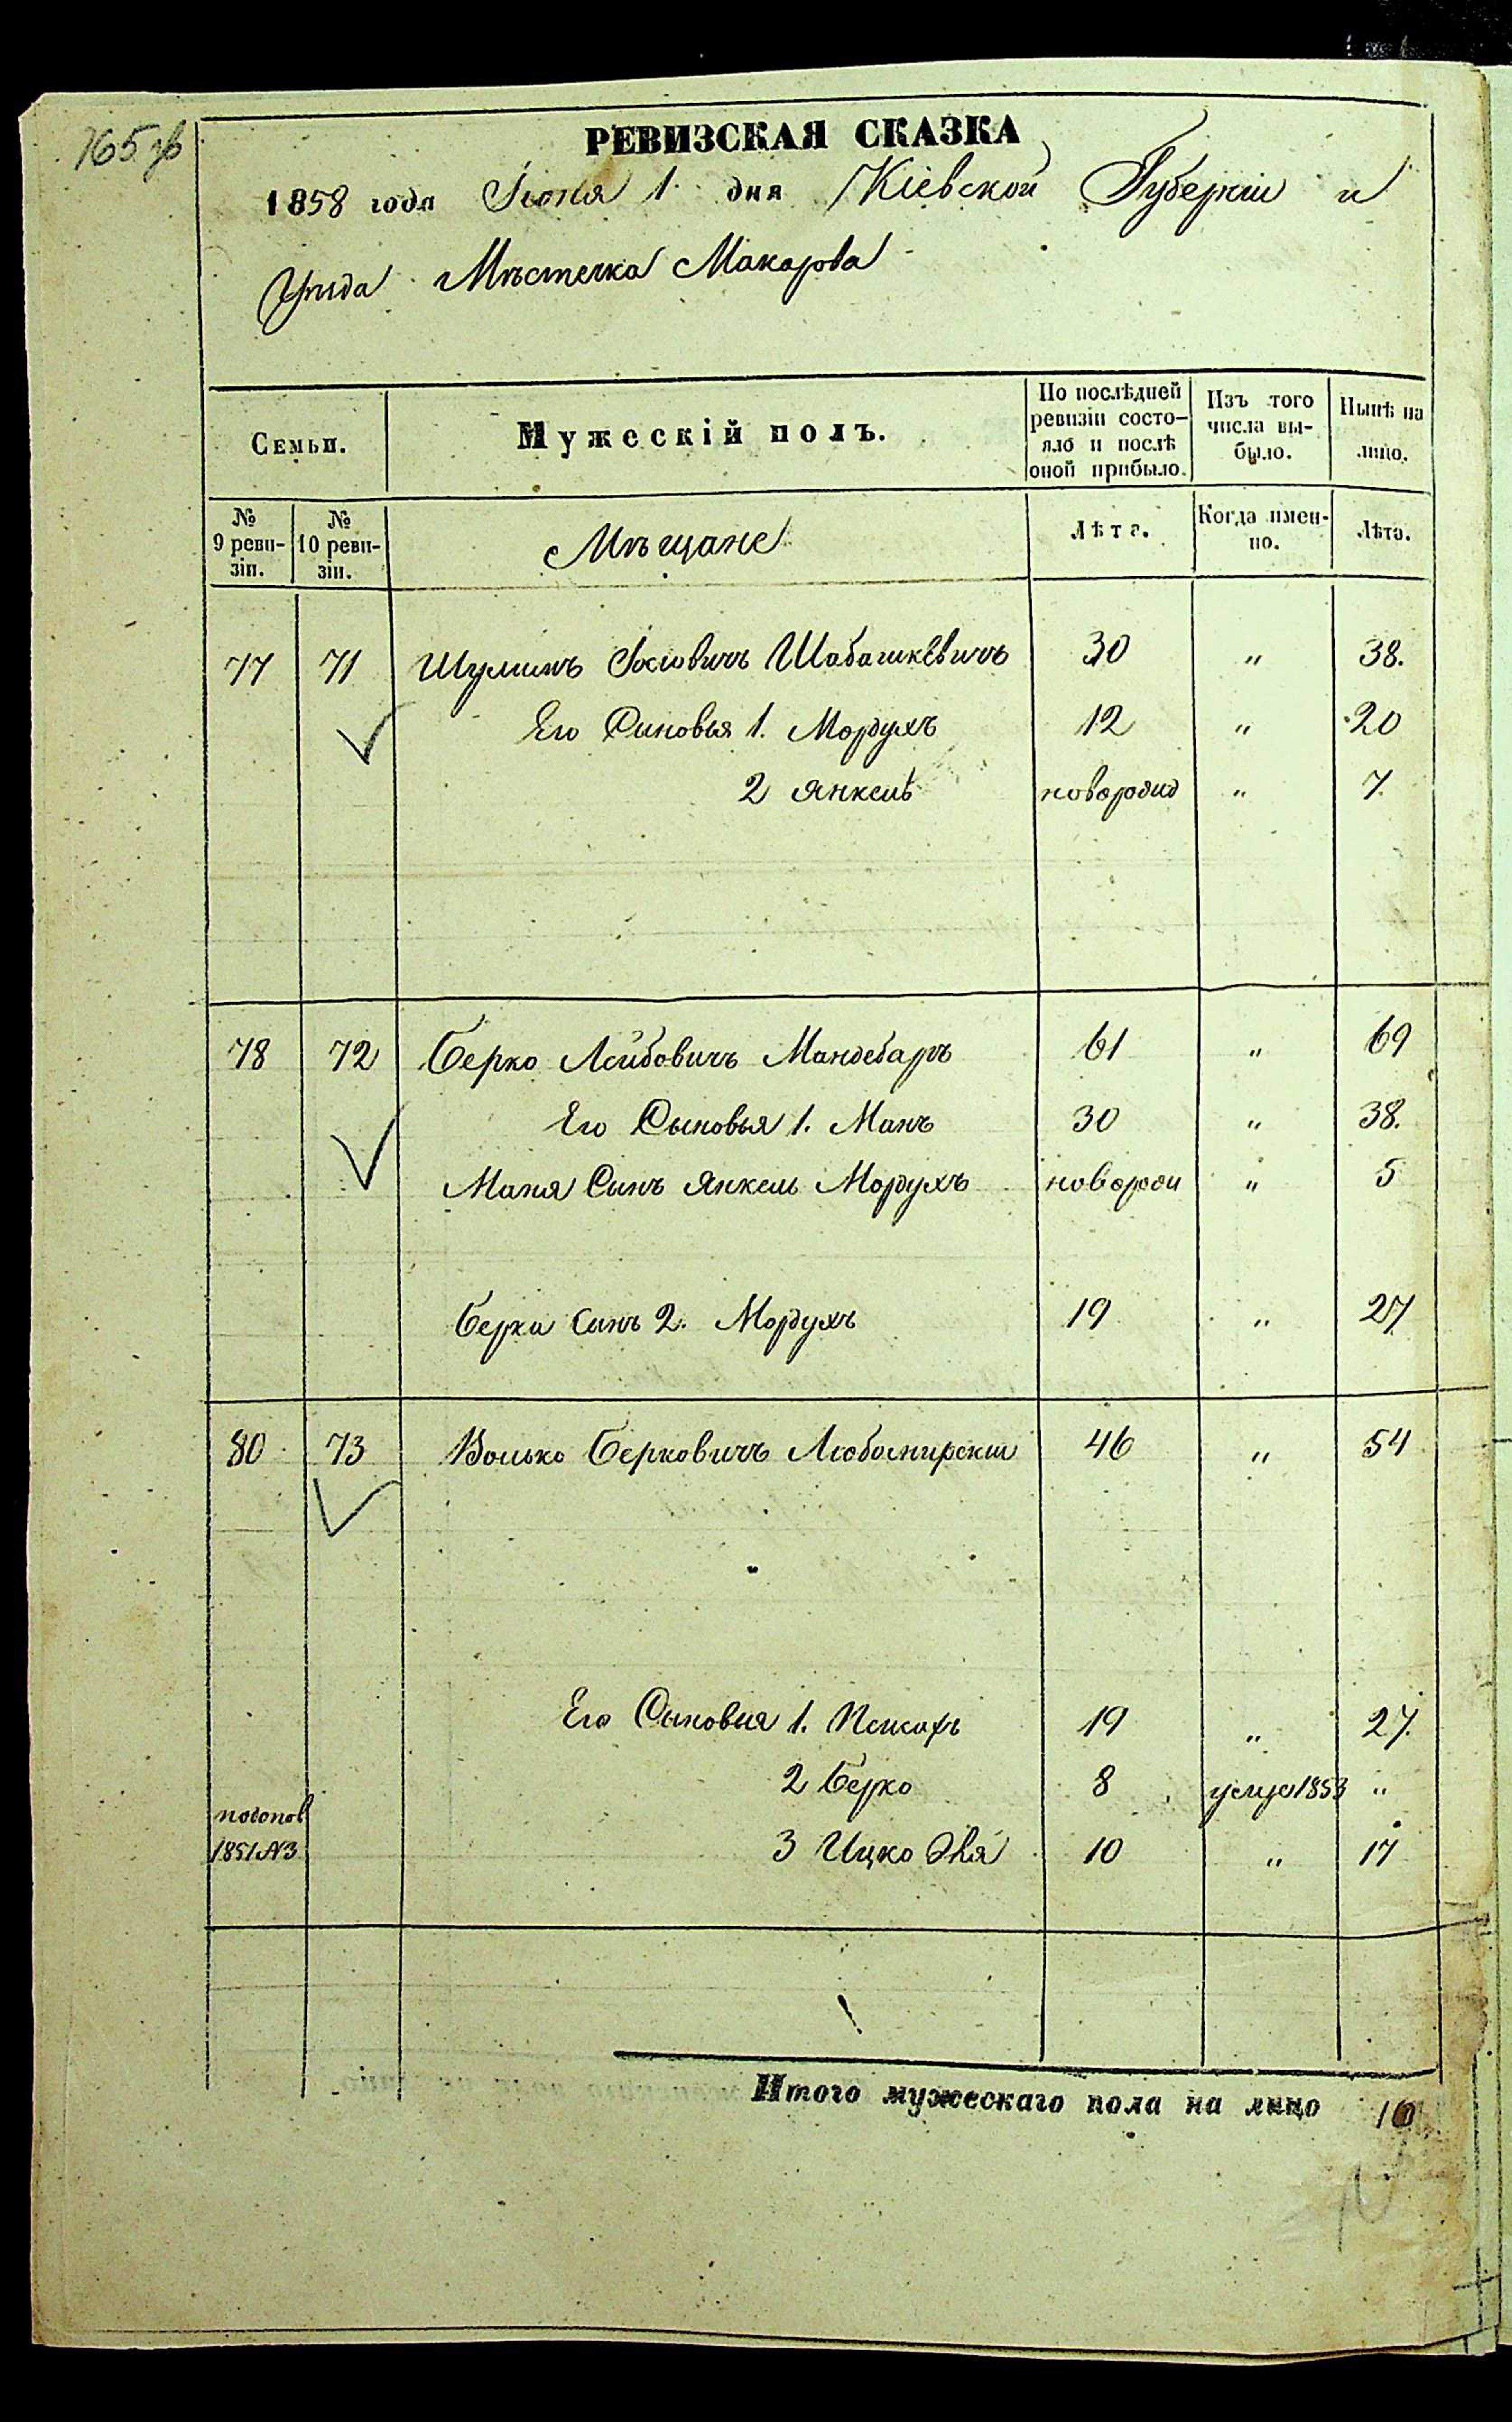 165 зв
РЕВИЗСКАЯ СКАЗКА
1858 года Іюня 1 дня Кіевской Губерніи и
Уѣзда Мѣстечка Макарова
Семьи. Мужескій полъ. По послѣдней ревизіи состо- яло и послѣ оной прибыло. Изъ того числа вы- было. Нынѣ на лицо.
№ 9 реви- зіи. № 10 реви- зіи. Мѣщане Лѣта. Когда имен- но. Лѣта.
77 71 Шулимъ Іосіовичъ Шабашкевичъ 30 " 38.
Его Синовья 1. Мордухъ 12 " 20
2 Янкель новорожд " 7
78 72 Берко Лейбовичъ Мандебаръ 61 " 69
Его Сыновья 1. Манъ 30 " 38.
Маня Синъ Янкель Мордухъ новорож " 5
Берка Синъ 2. Мордухъ 19 " 27
80 73 Волько Берковичъ Любомирскій 46 " 54
Его Сыновья 1. Пейсахъ 19 " 27.
2 Берко 8 умер 1853 "
подопов
1851 №3 3 Ицко 10 " 17
Итого мужескаго пола на лицо 10